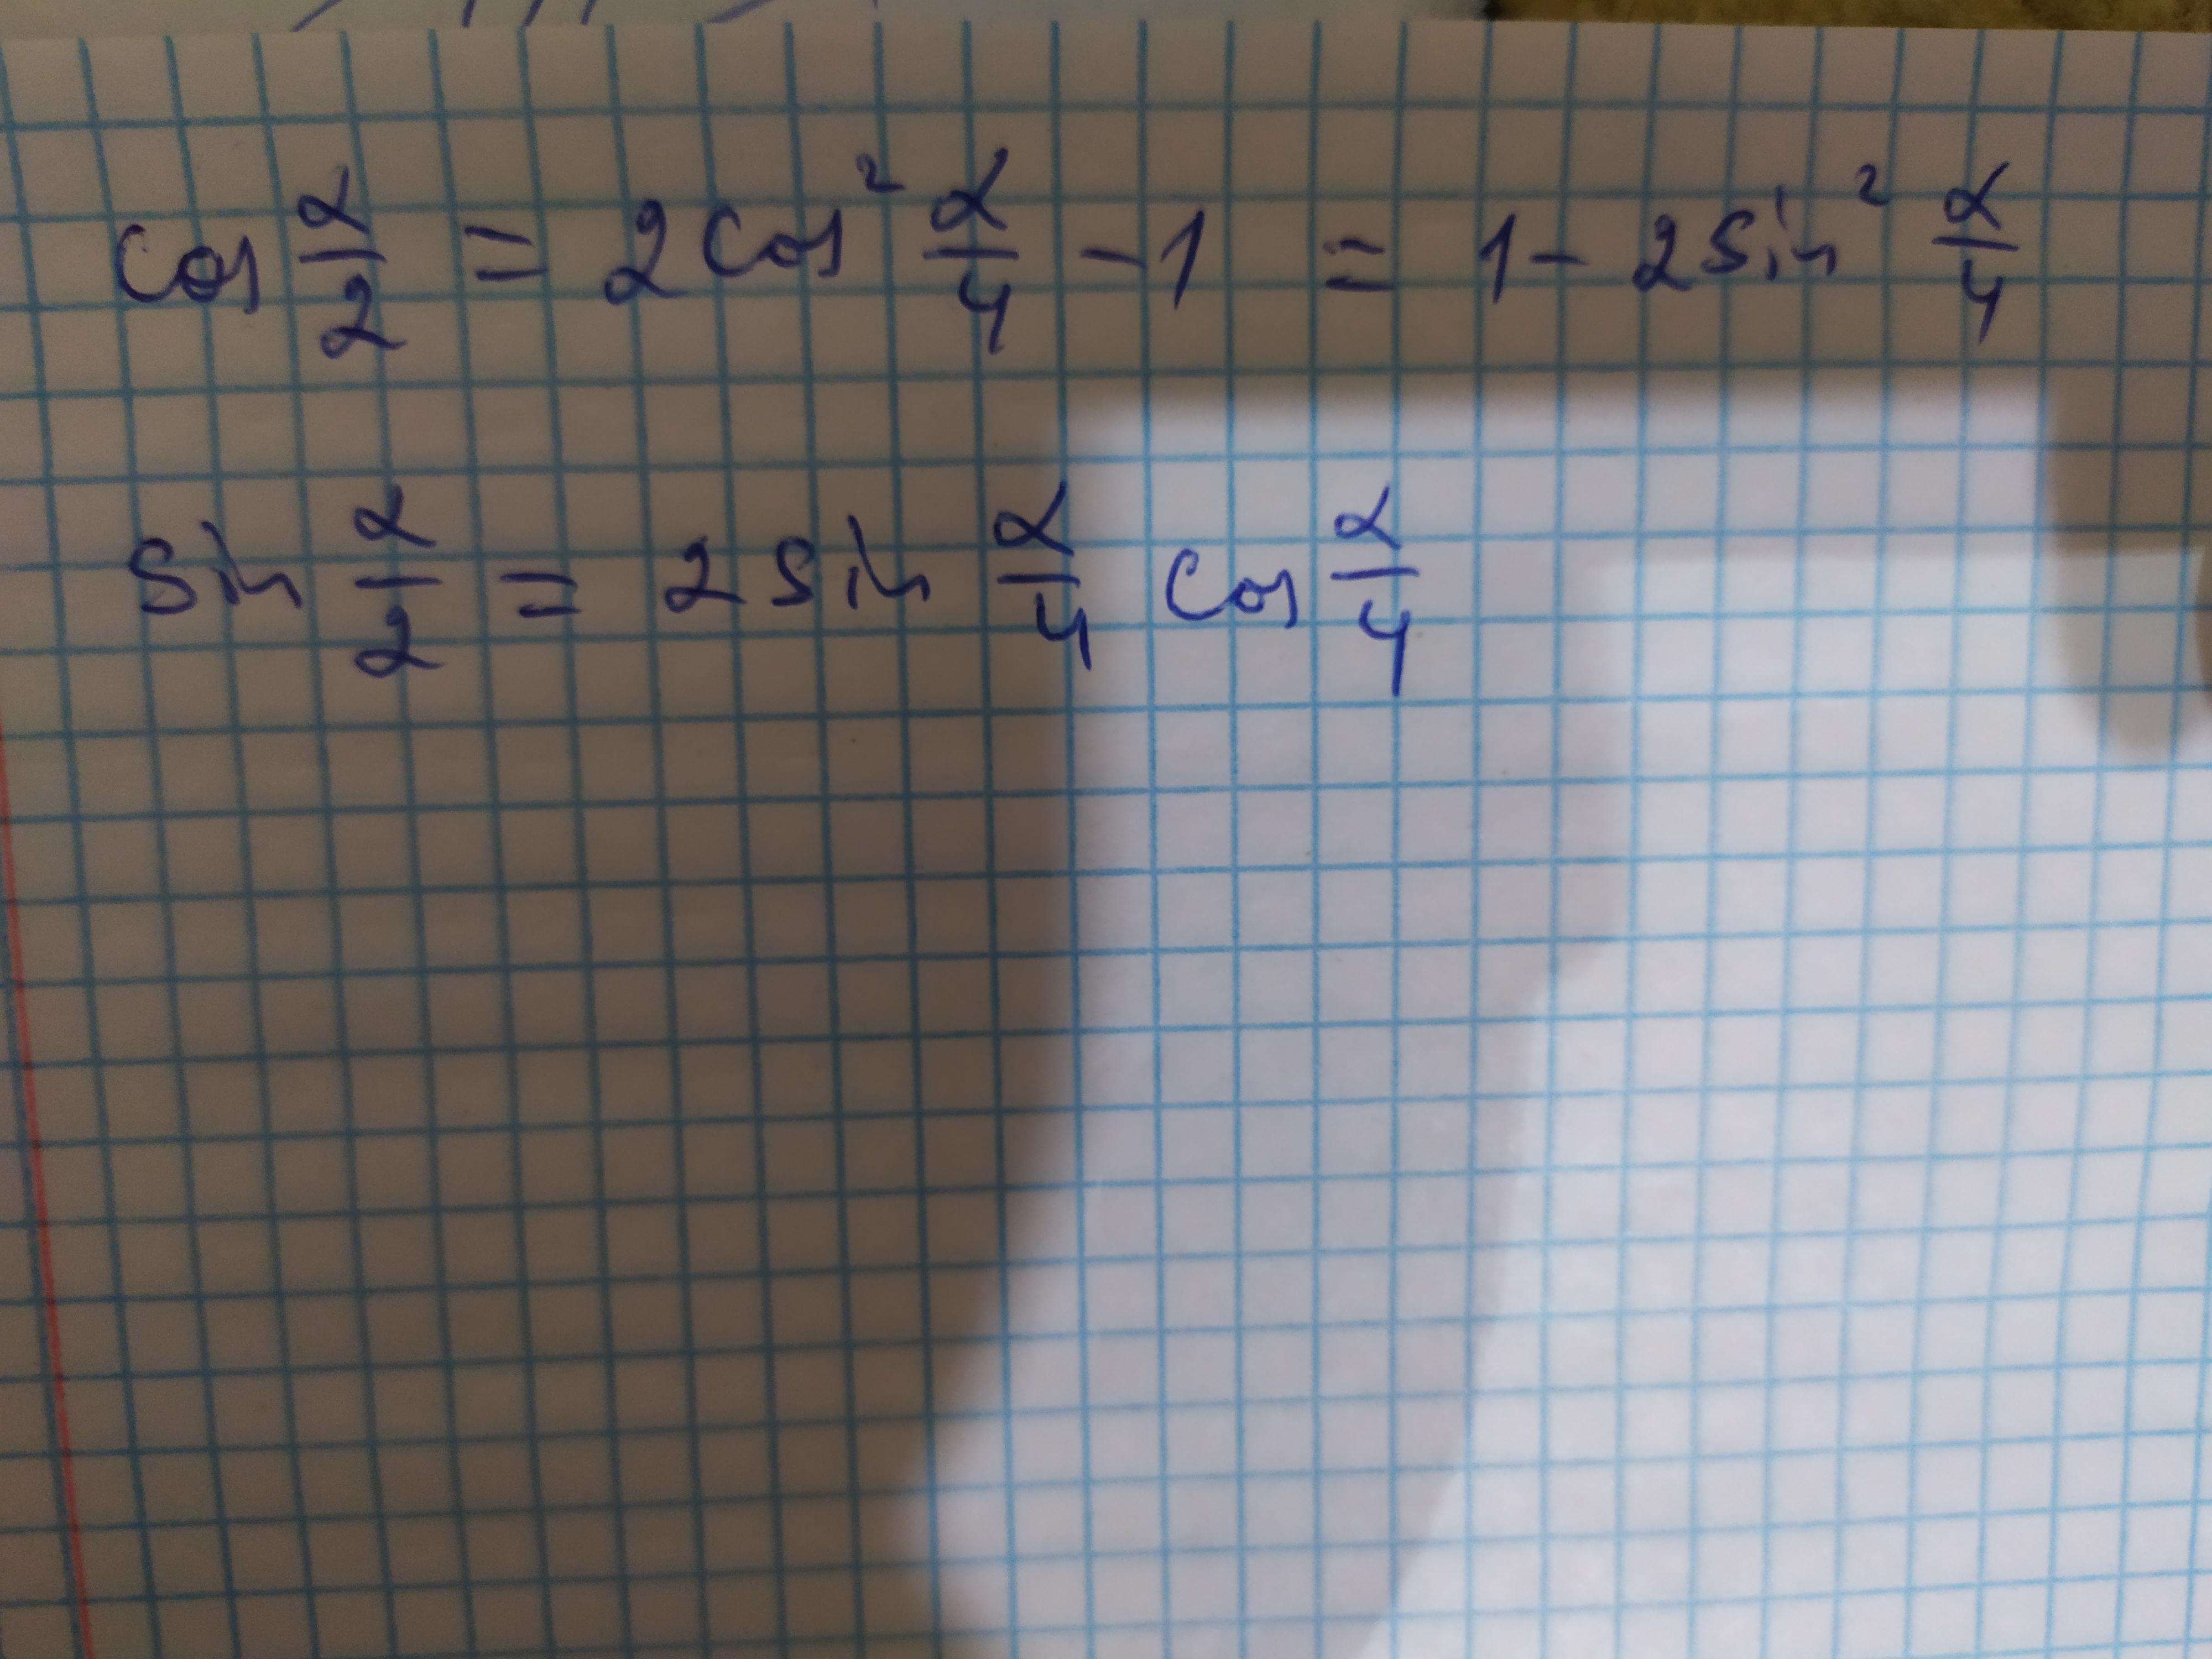 cos α/2 = 2cos² α/4 - 1 = 1 - 2sin² α/4
sin α/2 = 2 sin α/4 cos α/4